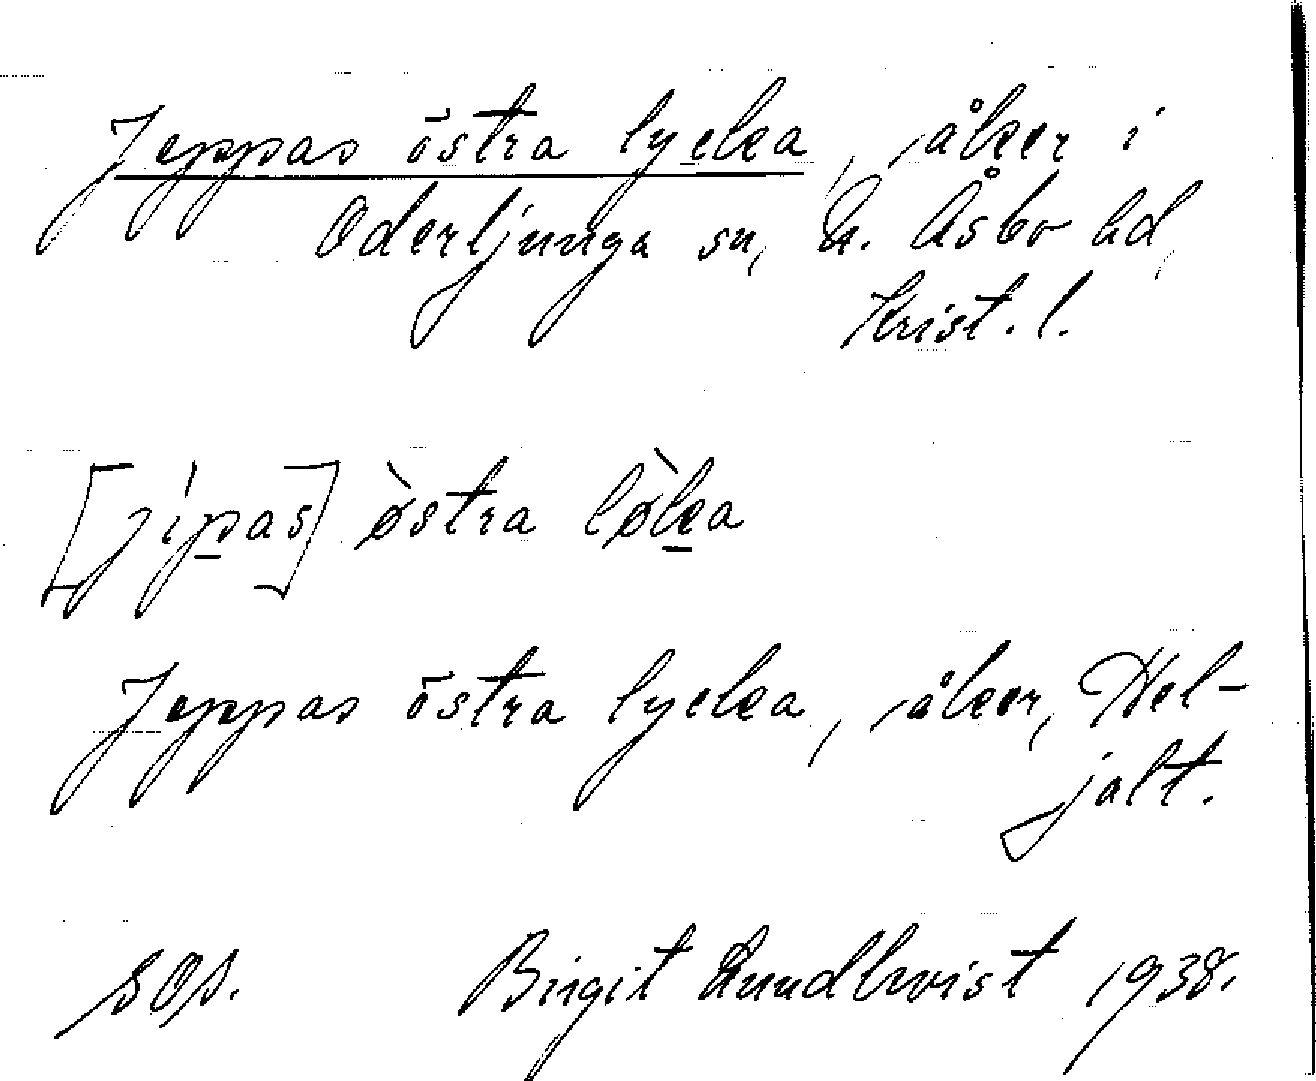 Jeppas östra lycka, åker i
Oderljunga sn, N. Åsbo hd,
Krist. l.
[jípas] òstra lòka
Jeppas östra lycka, åker, Hel-
jalt.
SOS. Birgit Lundkvist 1938.